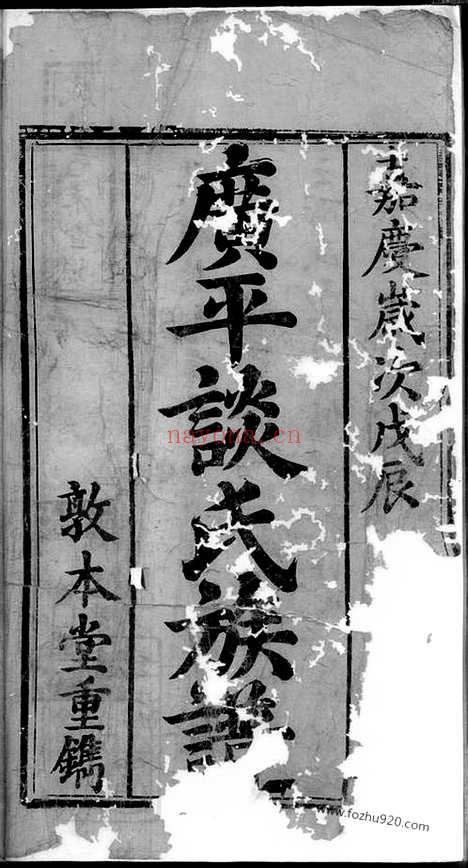 嘉慶歲次戊辰
廣平談氏族譜
敦本堂重鐫
nayona.cn
www.fozhu920.com